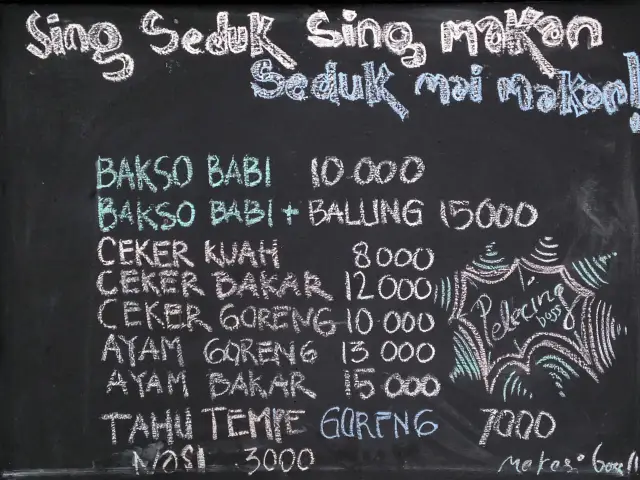 Sing Seduk Sing makan
Seduk mai makan!
BAKSO BABI 10.000
BAKSO BABI + BALUNG 15000
CEKER KUAH 8000
CEKER BAKAR 12000
CEKER GORENG 10000
AYAM GORENG 13000
AYAM BAKAR 15000
TAHU TEMPE GORENG 7000
NASI 3000
Pelecing
boss
Makasi boss!!